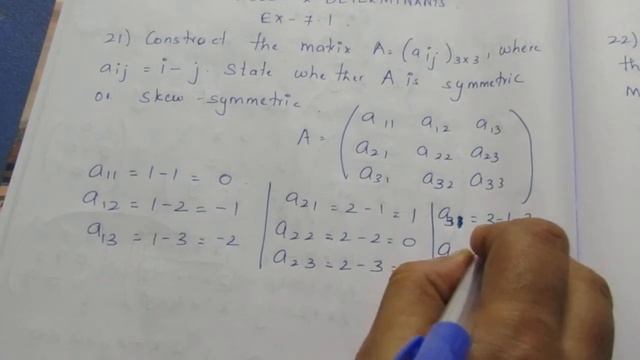 DETERMINANTS
EX - 7.1
21) Construct the matrix A = (aij)3×3, where
aij = i - j. State whether A is symmetric
or skew-symmetric.
A = ( a11 a12 a13
a21 a22 a23
a31 a32 a33 )
a11 = 1-1 = 0
a12 = 1-2 = -1
a13 = 1-3 = -2
a21 = 2-1 = 1
a22 = 2-2 = 0
a23 = 2-3 =
a31 = 3-1
a
22)
th
m